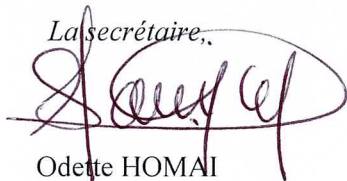 La secrétaire,
Odette HOMAI